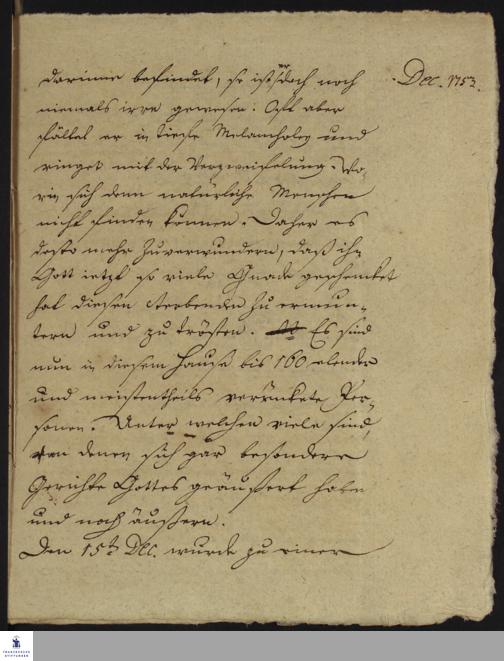 Dec. 1753.
darinne befindet, so ist er doch noch
niemals irre gewesen. Oft aber
fället er in tiefe Melancholey und
ringet mit der Verzweifelung. Wo-
rin sich denn natürliche Menschen
nicht finden können. Daher es
desto mehr zu verwundern, daß ihm
Gott ietzt so viele Gnade geschenket
hat diesen sterbenden zu ermun-
tern und zu trösten. Es sind
nun in diesem Hause bis 160 elende
und meistentheils verrückete Per-
sonen. Unter welchen viele sind,
an denen sich gar besondere
Gerichte Gottes geäußert haben
und noch äußern.
Den 15t. Dec. wurde zu einer
FRANCKESCHE
STIFTUNGEN